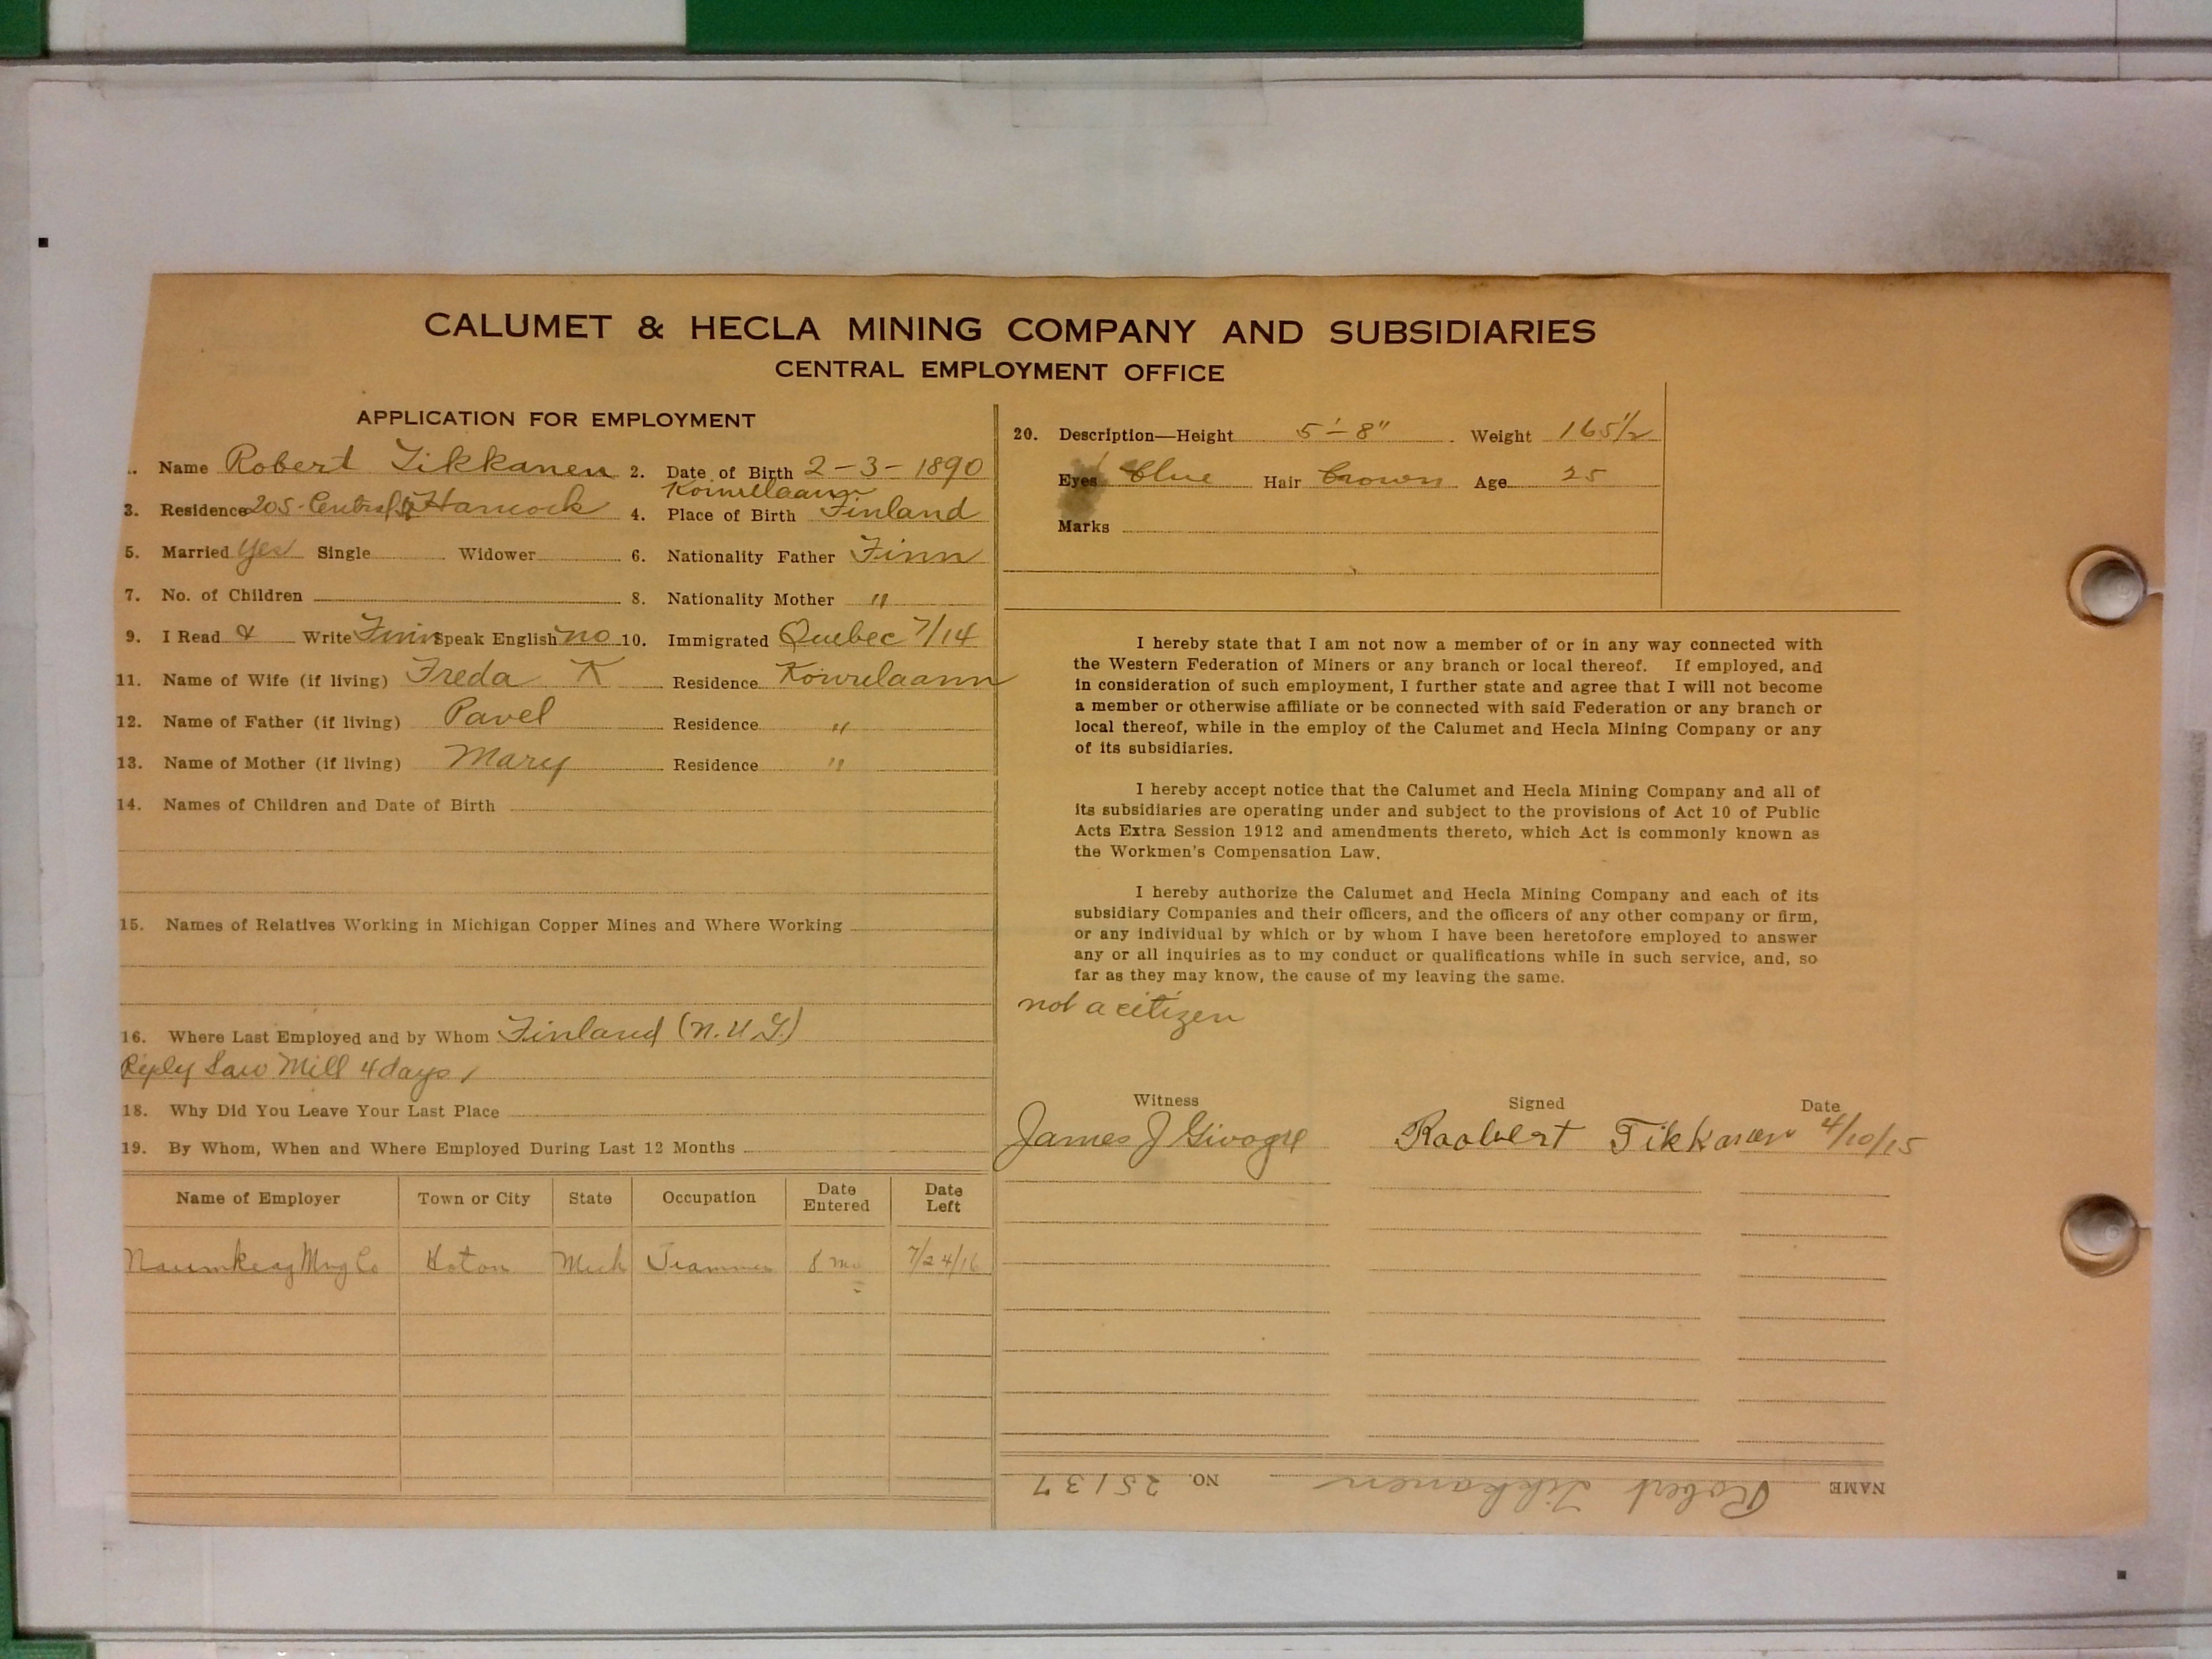 CALUMET & HECLA MINING COMPANY AND SUBSIDIARIES
CENTRAL EMPLOYMENT OFFICE
APPLICATION FOR EMPLOYMENT
. Name Robert Tikkanen 2. Date of Birth 2-3-1890
3. Residence 205 Central Hancock 4. Place of Birth Finland
5. Married Yes Single Widower 6. Nationality Father Finn
7. No. of Children 8. Nationality Mother "
9. I Read & Write Finn Speak English no 10. Immigrated Quebec 7/14
11. Name of Wife (if living) Freda K Residence
12. Name of Father (if living) Pavel Residence "
13. Name of Mother (if living) Mary Residence "
14. Names of Children and Date of Birth
15. Names of Relatives Working in Michigan Copper Mines and Where Working
16. Where Last Employed and by Whom Finland
Riply Saw Mill 4 days
18. Why Did You Leave Your Last Place
19. By Whom, When and Where Employed During Last 12 Months
Name of Employer Town or City State Occupation Date Entered Date Left
Naumkeag Mng Co Hoton Mich Trammer 8 mo 7/24/16
20. Description—Height 5'-8" Weight 165½
Eyes blue Hair brown Age 25
Marks
I hereby state that I am not now a member of or in any way connected with
the Western Federation of Miners or any branch or local thereof. If employed, and
in consideration of such employment, I further state and agree that I will not become
a member or otherwise affiliate or be connected with said Federation or any branch or
local thereof, while in the employ of the Calumet and Hecla Mining Company or any
of its subsidiaries.
I hereby accept notice that the Calumet and Hecla Mining Company and all of
its subsidiaries are operating under and subject to the provisions of Act 10 of Public
Acts Extra Session 1912 and amendments thereto, which Act is commonly known as
the Workmen's Compensation Law.
I hereby authorize the Calumet and Hecla Mining Company and each of its
subsidiary Companies and their officers, and the officers of any other company or firm,
or any individual by which or by whom I have been heretofore employed to answer
any or all inquiries as to my conduct or qualifications while in such service, and, so
far as they may know, the cause of my leaving the same.
not a citizen
Witness Signed Date
James J Roobert Tikkanen 4/10/15
NAME Robert Tikkanen NO. 25137